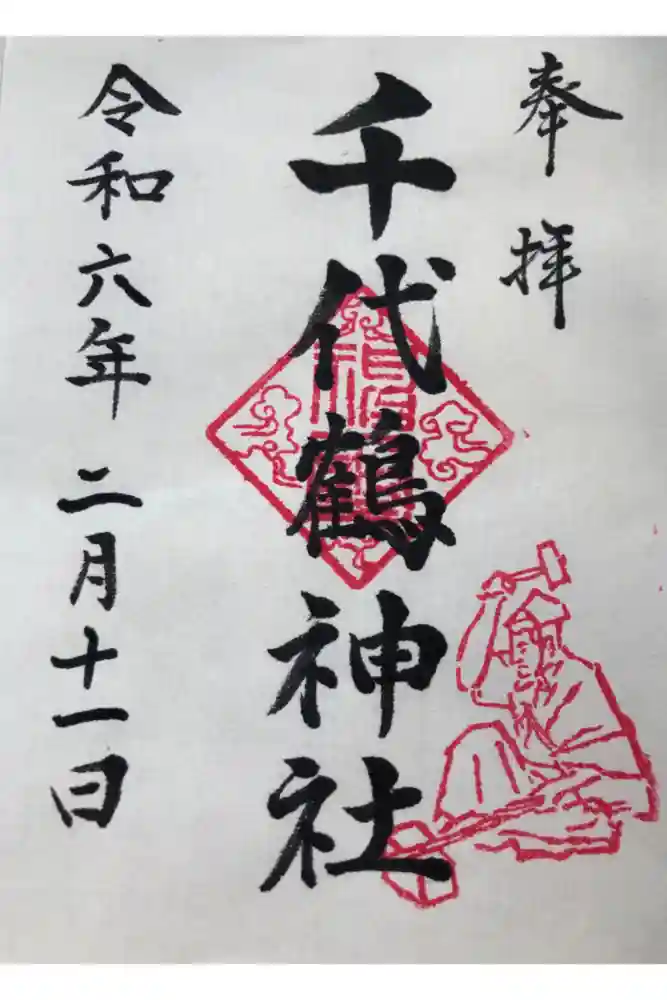 奉拝
千代鶴神社
令和六年 二月十一日